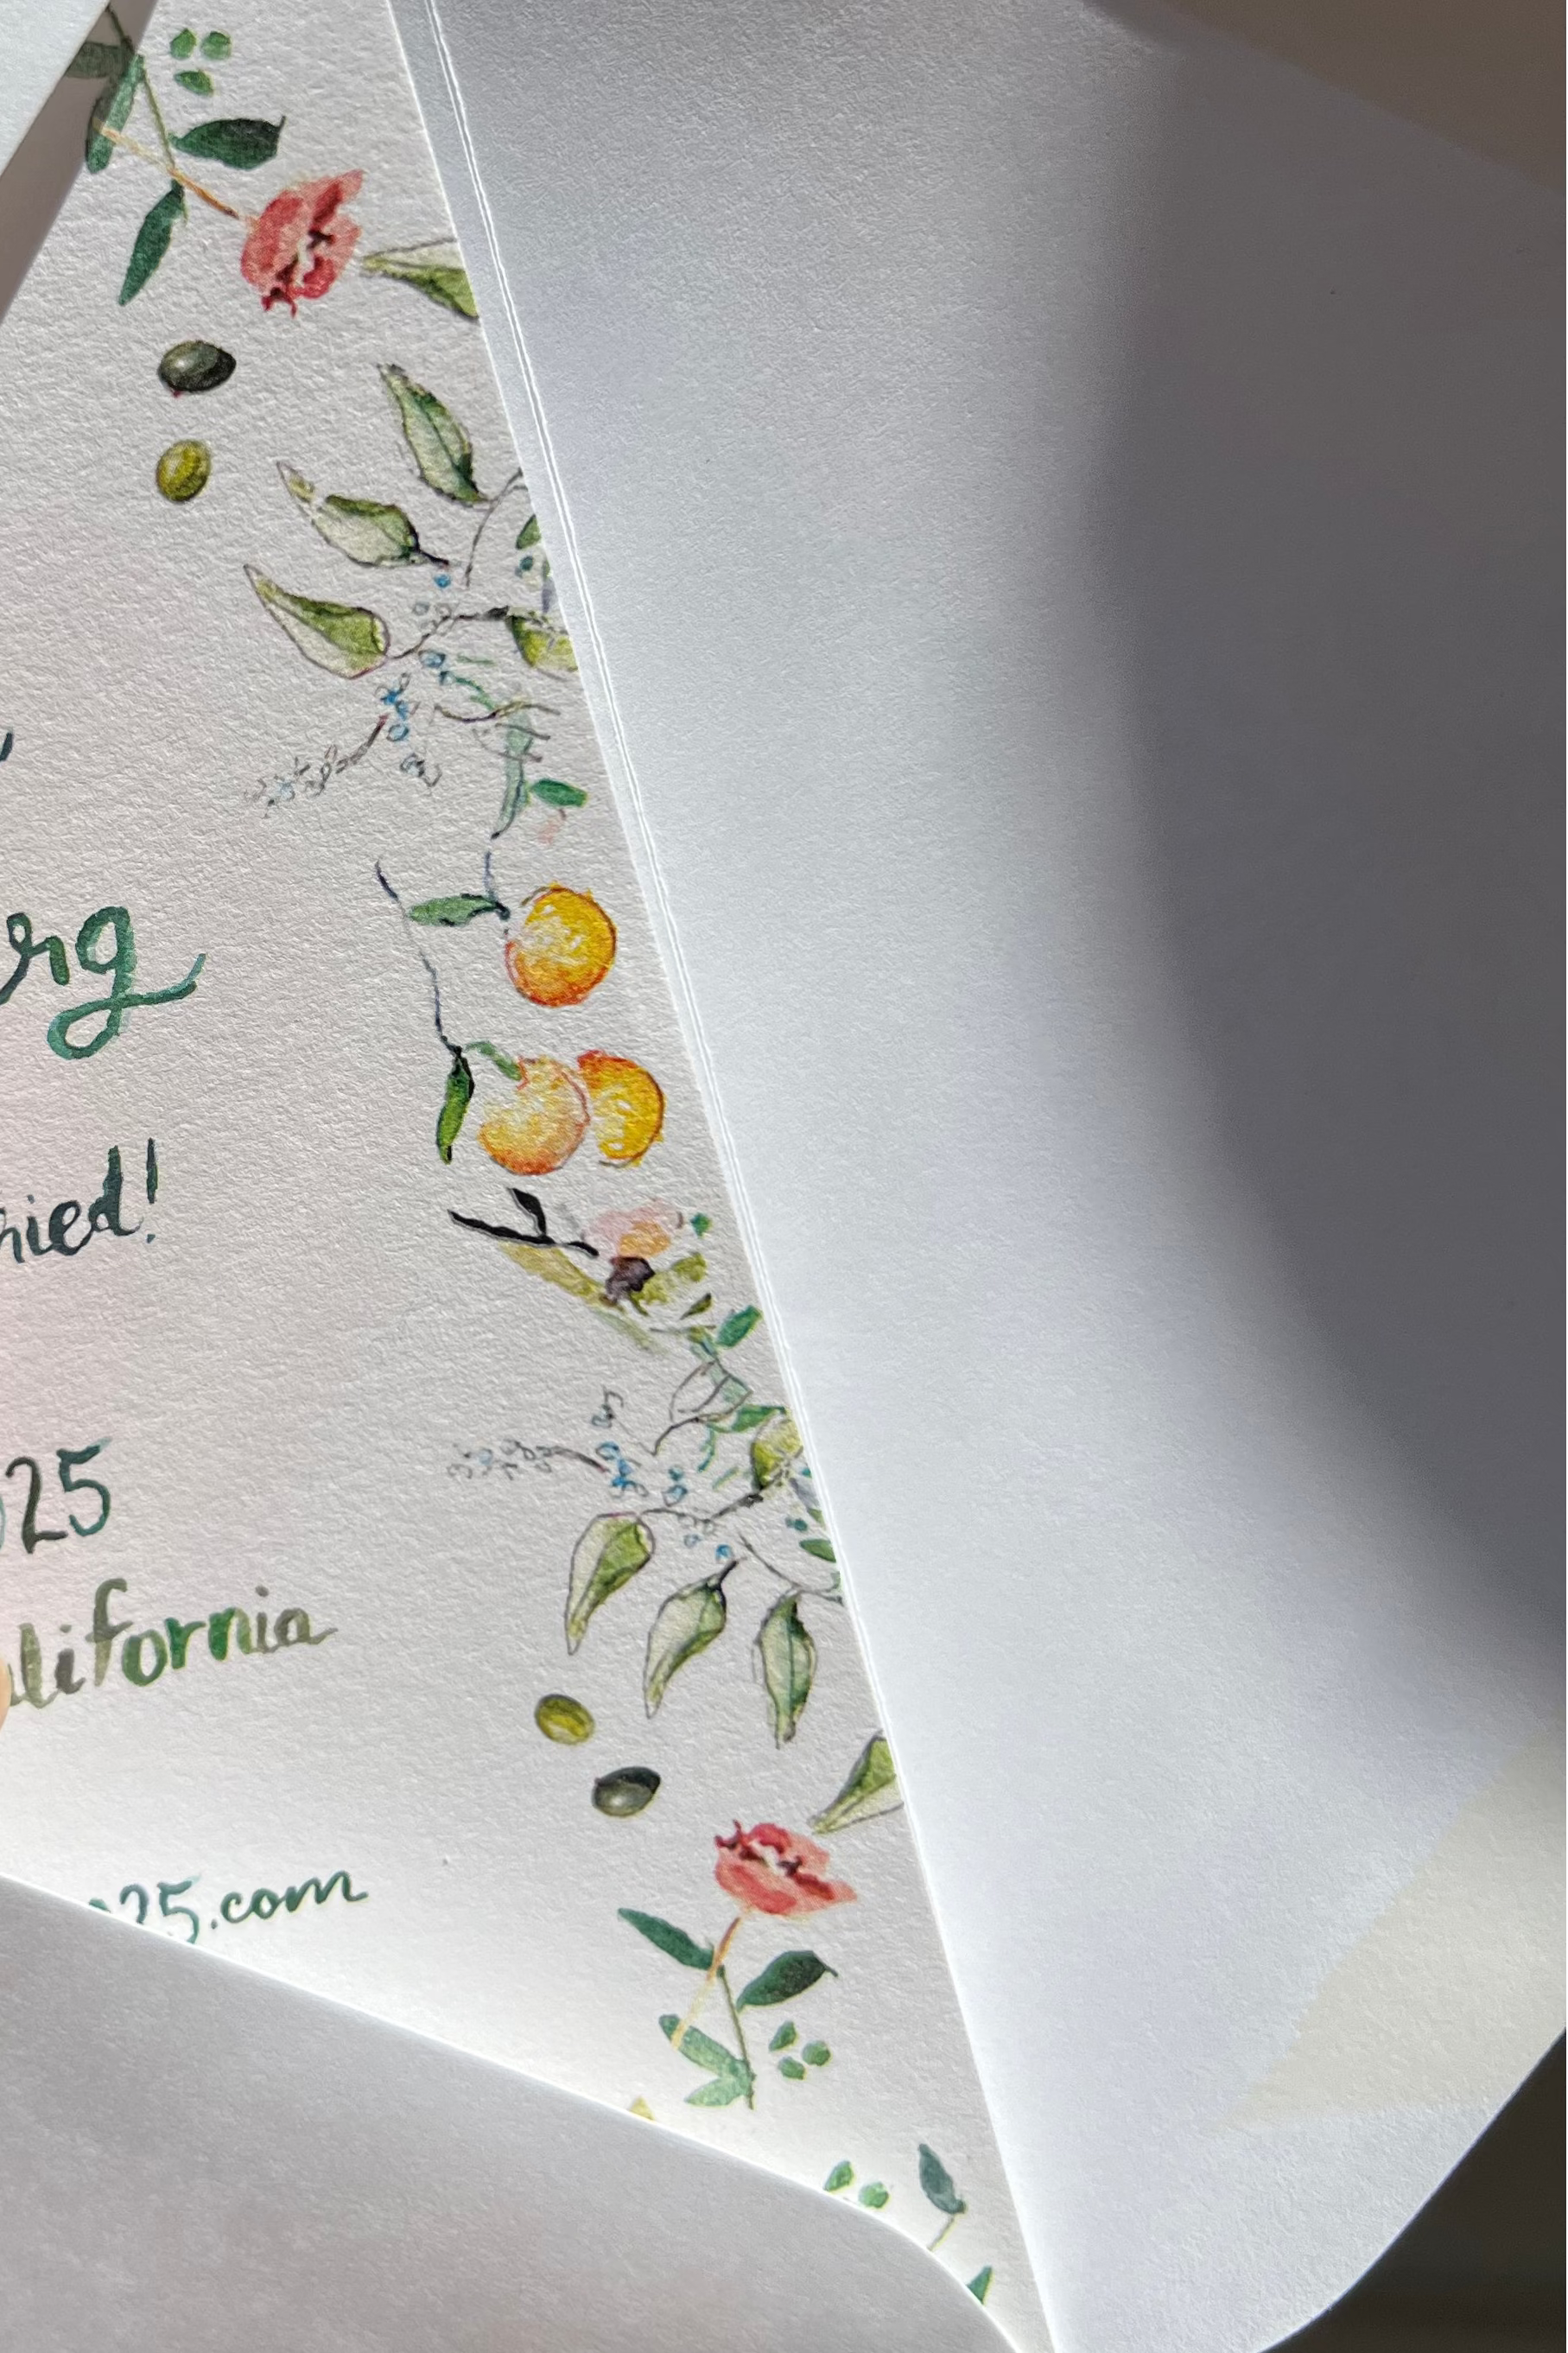 rg
ried!
025
alifornia
025.com